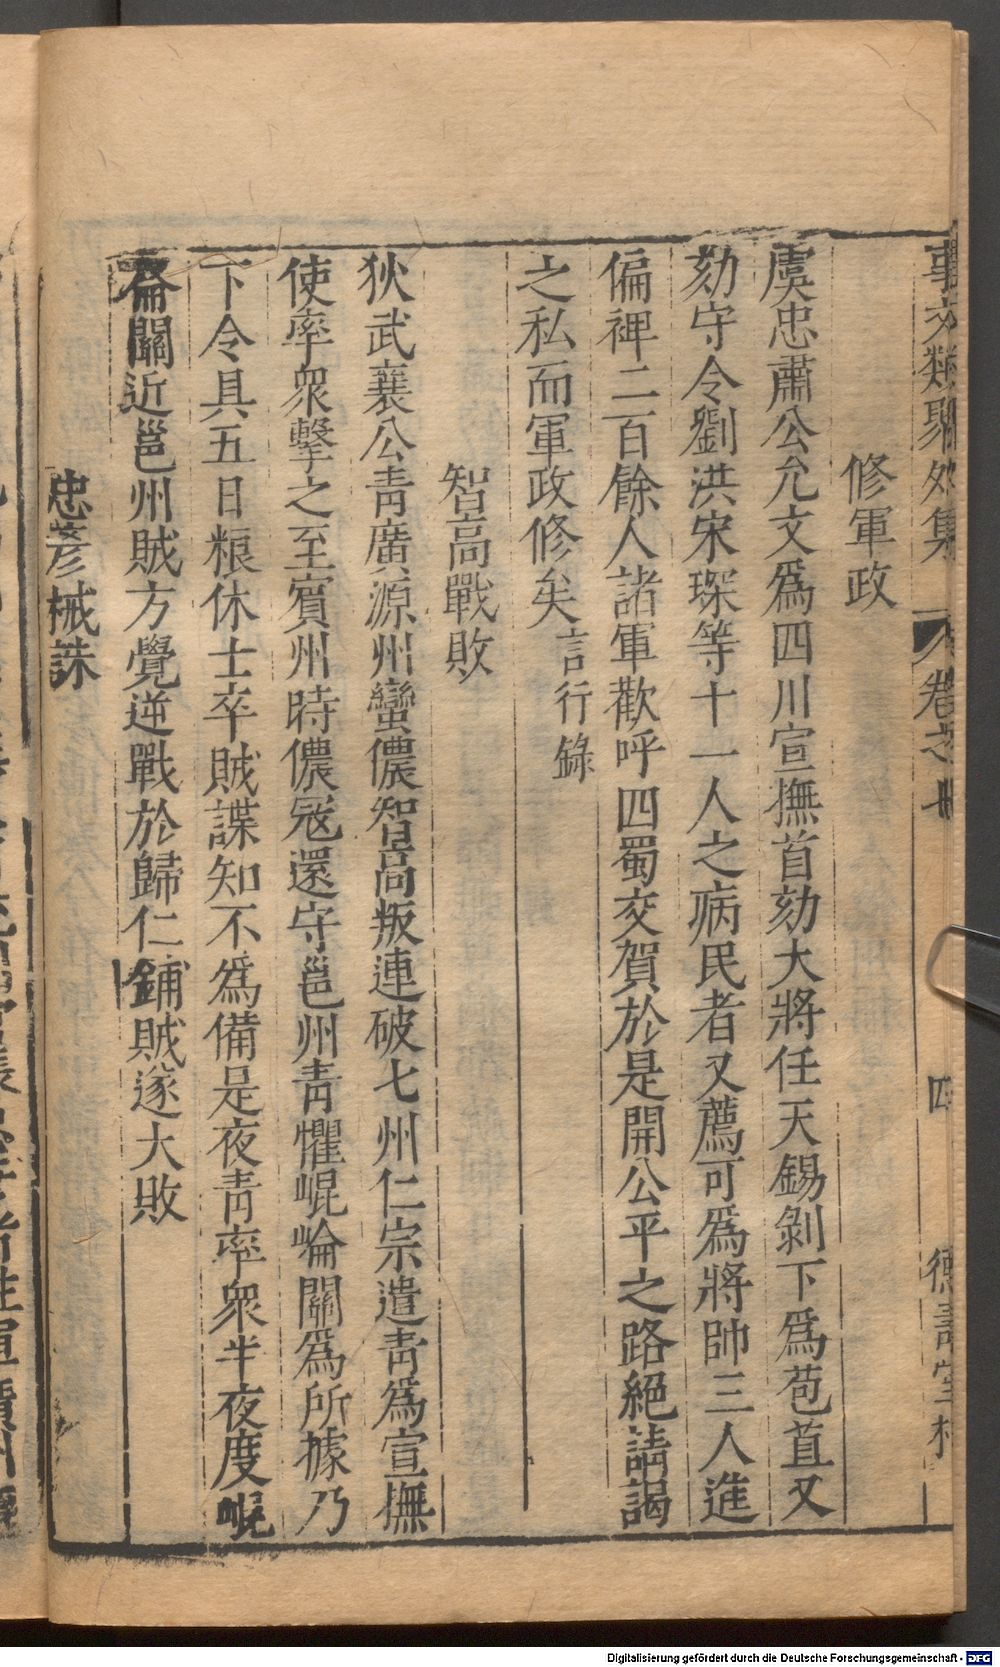 事文類聚外集
卷之
四
德壽堂梓
修軍政
虞忠肅公允文爲四川宣撫首劾大將任天錫剝下爲苞苴又
劾守令劉洪宋琛等十一人之病民者又薦可爲將帥三人進
偏裨二百餘人諸軍歡呼四蜀交賀於是開公平之路絕請謁
之私而軍政修矣言行錄
智高戰敗
狄武襄公靑廣源州蠻儂智高叛連破七州仁宗遣靑爲宣撫
使率衆擊之至賔州時儂寇還守邕州靑懼崐崘關爲所據乃
下令具五日粮休士卒賊諜知不爲備是夜靑率衆半夜度崐
崘關近邕州賊方覺逆戰於歸仁鋪賊遂大敗
忠彥械誅
Digitalisierung gefördert durch die Deutsche Forschungsgemeinschaft - DFG